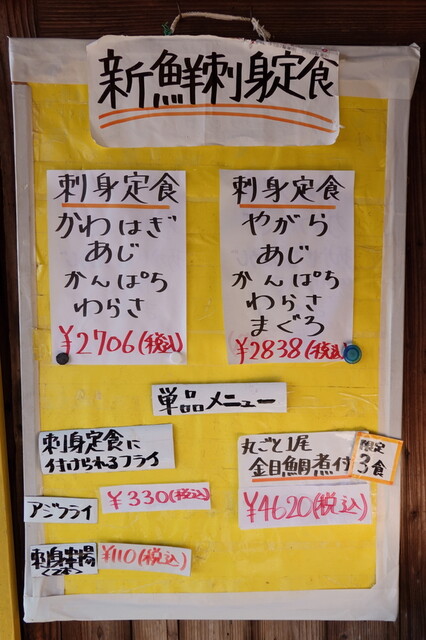 新鮮刺身定食
刺身定食
かわはぎ
あじ
かんぱち
わらさ
¥2706(税込)
刺身定食
やがら
あじ
かんぱち
わらさ
まぐろ
¥2838(税込)
単品メニュー
刺身定食に
付けられるフライ
アジフライ
¥330(税込)
¥110(税込)
丸ごと1尾
金目鯛煮付
限定
3食
¥4620(税込)